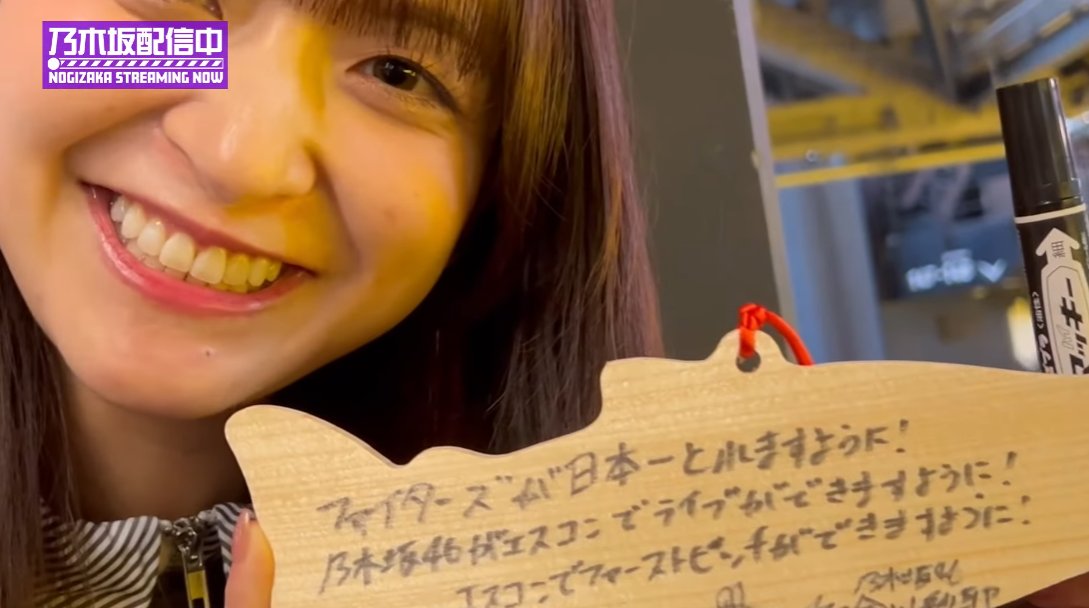 乃木坂配信中
NOGIZAKA STREAMING NOW
ファイターズが日本一とれますように!
乃木坂46がエスコンでライブができますように!
エスコンでファーストピッチができますように!
乃木坂46
細
マッキー